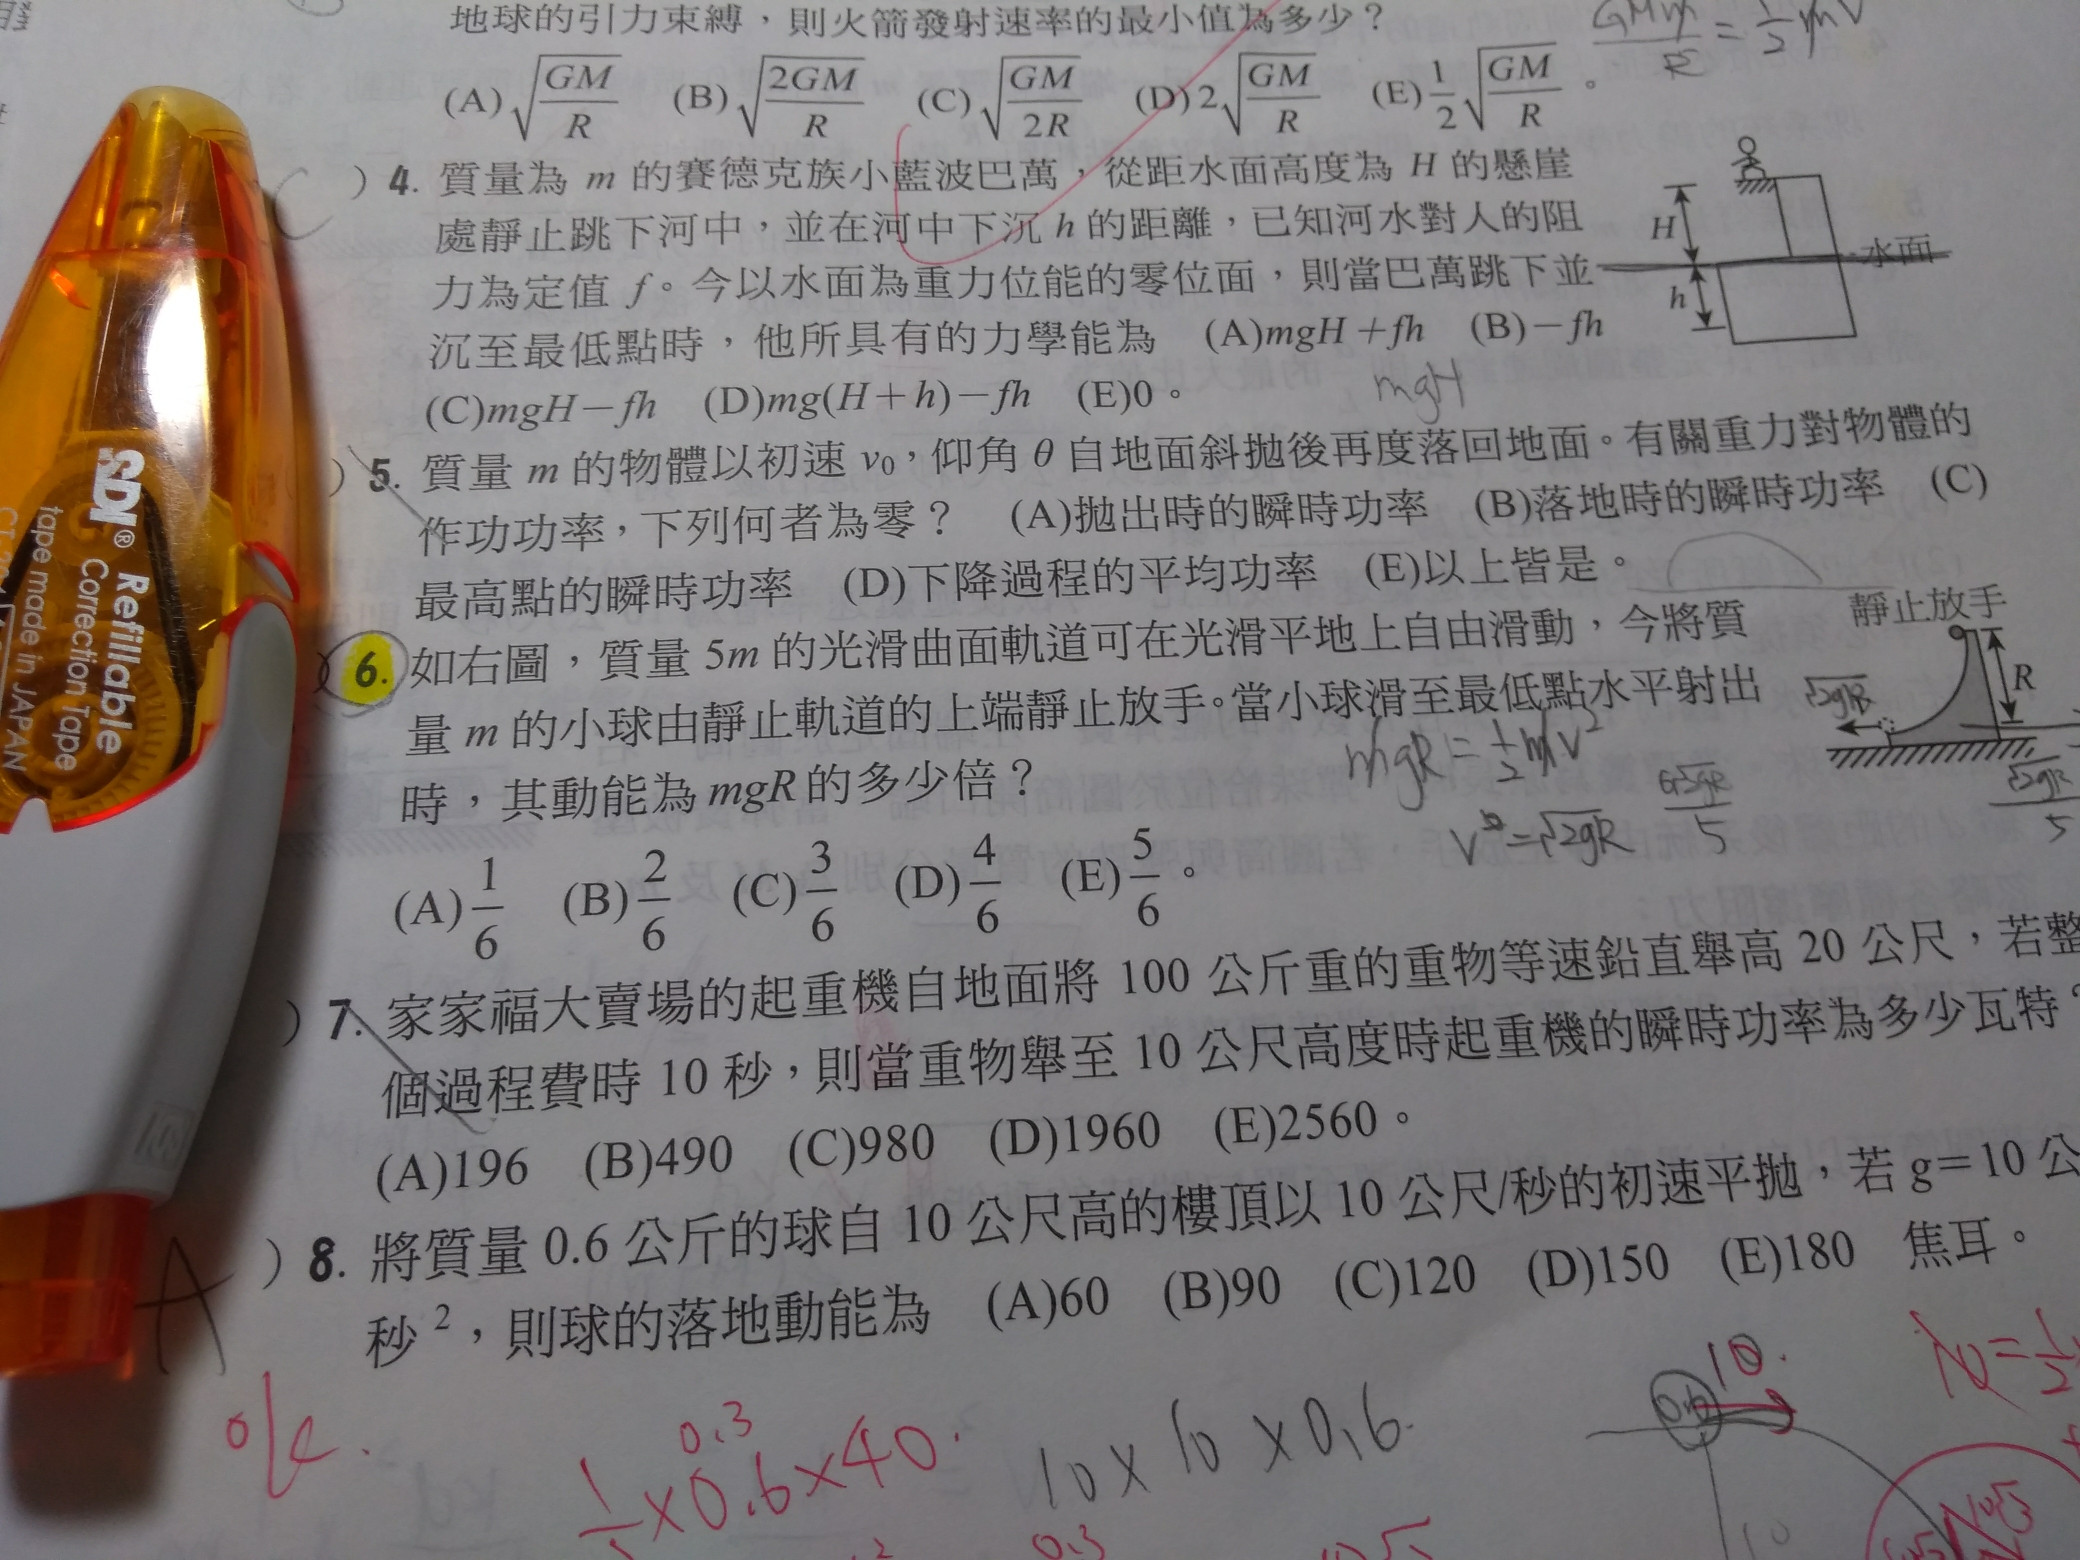 地球的引力束縛，則火箭發射速率的最小值為多少？
(A)√(GM/R) (B)√(2GM/R) (C)√(GM/2R) (D)2√(GM/R) (E)1/2√(GM/R)。
C )4. 質量為 m 的賽德克族小藍波巴萬，從距水面高度為 H 的懸崖
處靜止跳下河中，並在河中下沉 h 的距離，已知河水對人的阻
力為定值 f。今以水面為重力位能的零位面，則當巴萬跳下並
沉至最低點時，他所具有的力學能為 (A)mgH+fh (B)-fh
(C)mgH-fh (D)mg(H+h)-fh (E)0。
mgH
H
水面
h
)5. 質量 m 的物體以初速 v₀，仰角 θ 自地面斜拋後再度落回地面。有關重力對物體的
作功功率，下列何者為零？ (A)拋出時的瞬時功率 (B)落地時的瞬時功率 (C)
最高點的瞬時功率 (D)下降過程的平均功率 (E)以上皆是。
)6. 如右圖，質量 5m 的光滑曲面軌道可在光滑平地上自由滑動，今將質
量 m 的小球由靜止軌道的上端靜止放手。當小球滑至最低點水平射出
時，其動能為 mgR 的多少倍？
mgR=1/2mv²
靜止放手
R
√2gR
√2gR/5
(A)1/6 (B)2/6 (C)3/6 (D)4/6 (E)5/6。
)7. 家家福大賣場的起重機自地面將 100 公斤重的重物等速鉛直舉高 20 公尺，若整
個過程費時 10 秒，則當重物舉至 10 公尺高度時起重機的瞬時功率為多少瓦特？
(A)196 (B)490 (C)980 (D)1960 (E)2560。
A )8. 將質量 0.6 公斤的球自 10 公尺高的樓頂以 10 公尺/秒的初速平拋，若 g=10 公
秒²，則球的落地動能為 (A)60 (B)90 (C)120 (D)150 (E)180 焦耳。
0.3
×0.6×40
10×10×0.6
0.6
10
0.3
10
SDI® Refillable
Correction Tape
tape made in JAPAN